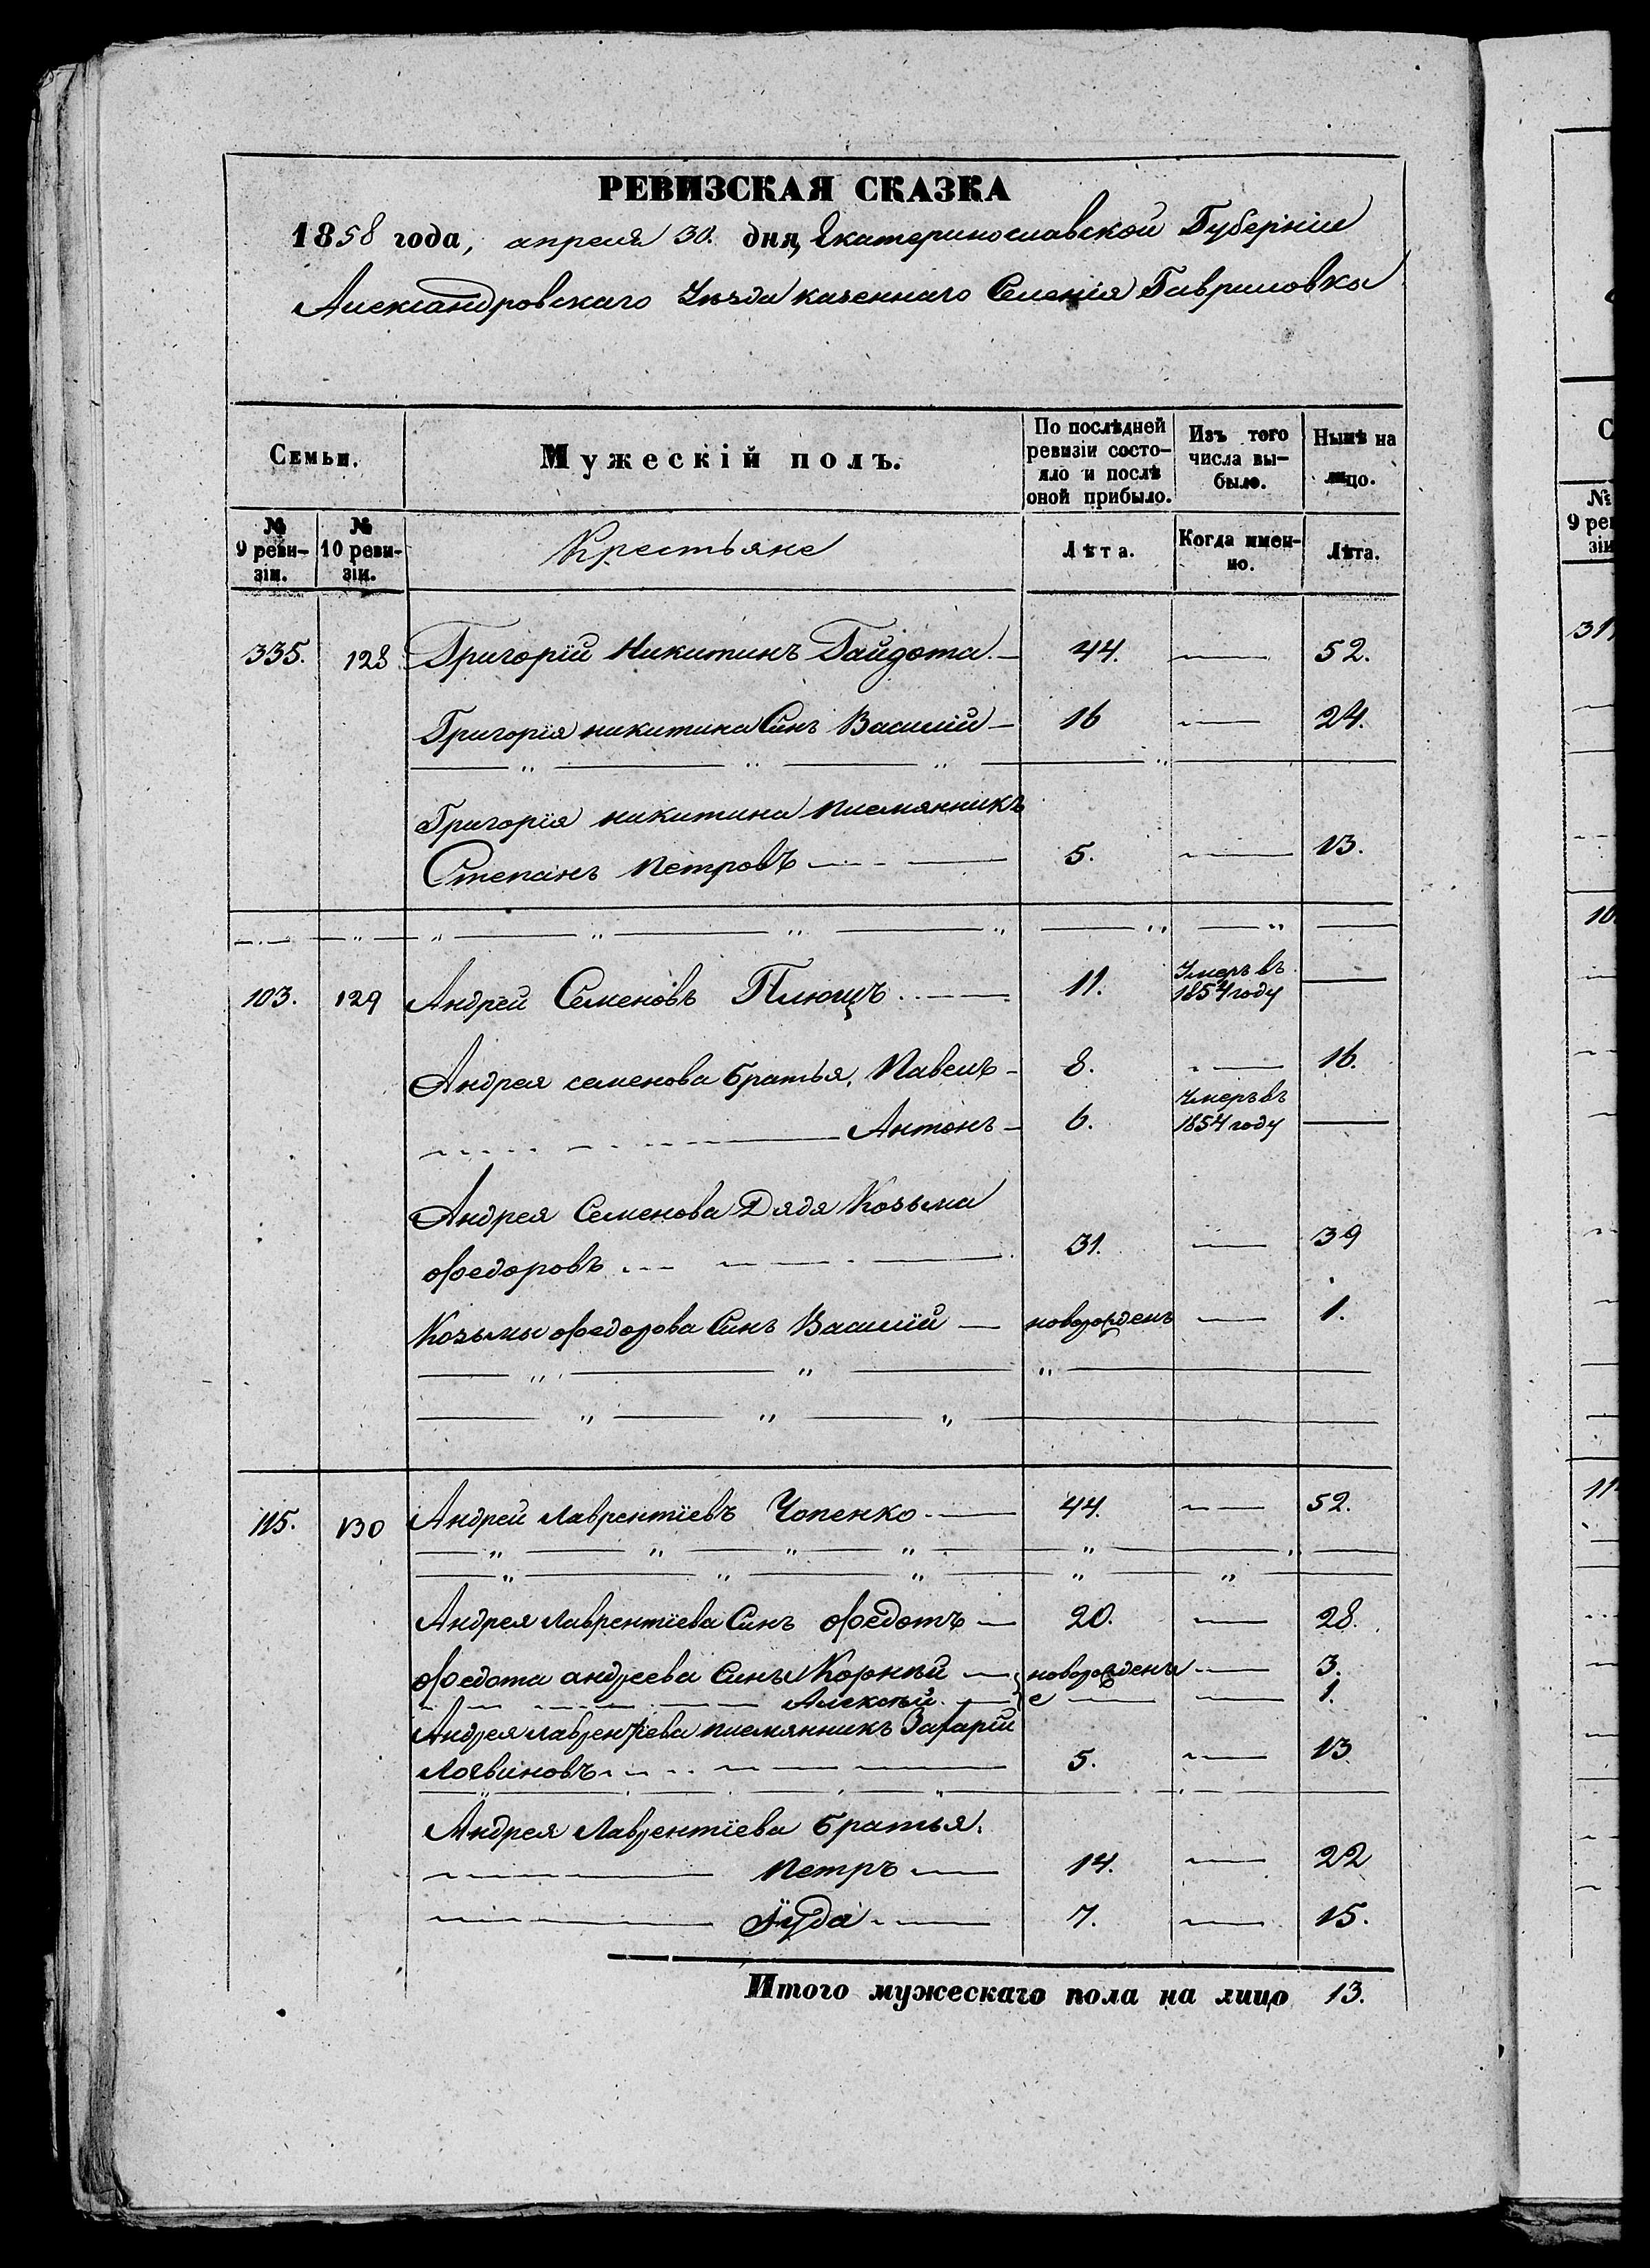 РЕВИЗСКАЯ СКАЗКА
1858 года, апреля 30. дня, Екатеринославской Губерніи
Александровскаго Уѣзда казеннаго Селенія Гавриловка
Семьи.
Мужескій полъ.
По послѣдней ревизіи состо-
яло и послѣ оной прибыло.
Изъ того числа вы-
было.
Нынѣ на лицо.
№ 9 реви-
зіи.
№ 10 реви-
зіи.
Крестьяне
Лѣта.
Когда имен-
но.
Лѣта.
335. 128 Григорій Никитинъ Гайдота. — 44. — 52.
Григорія никитина Синъ Василій — 16 — 24.
Григорія никитина племянникъ
Степанъ Петровъ — 5. — 13.
103. 129 Андрей Семеновъ Плющъ — 11. Умеръ въ 1854 году —
Андрея семенова братья, Павелъ — 8. — 16.
Антонъ — 6. Умеръ въ 1854 году —
Андрея Семенова Дядя Козьма
Федоровъ — 31. — 39
Козьмы Федорова Синъ Василій — новорожденъ — 1.
115. 130 Андрей Лаврентіевъ Чопенко — 44. — 52.
Андрея Лаврентіева Синъ Федотъ — 20. — 28.
Федота андреева Сины Корнѣй — новорожденые — 3.
Алексѣй. — 1.
Андрея Лаврентіева племянникъ Захарій
Логвиновъ — 5. — 13
Андрея Лаврентіева братья.
Петръ — 14. — 22
Іуда — 7. — 15.
Итого мужескаго пола на лицо 13.
№ 9 реви
зіи